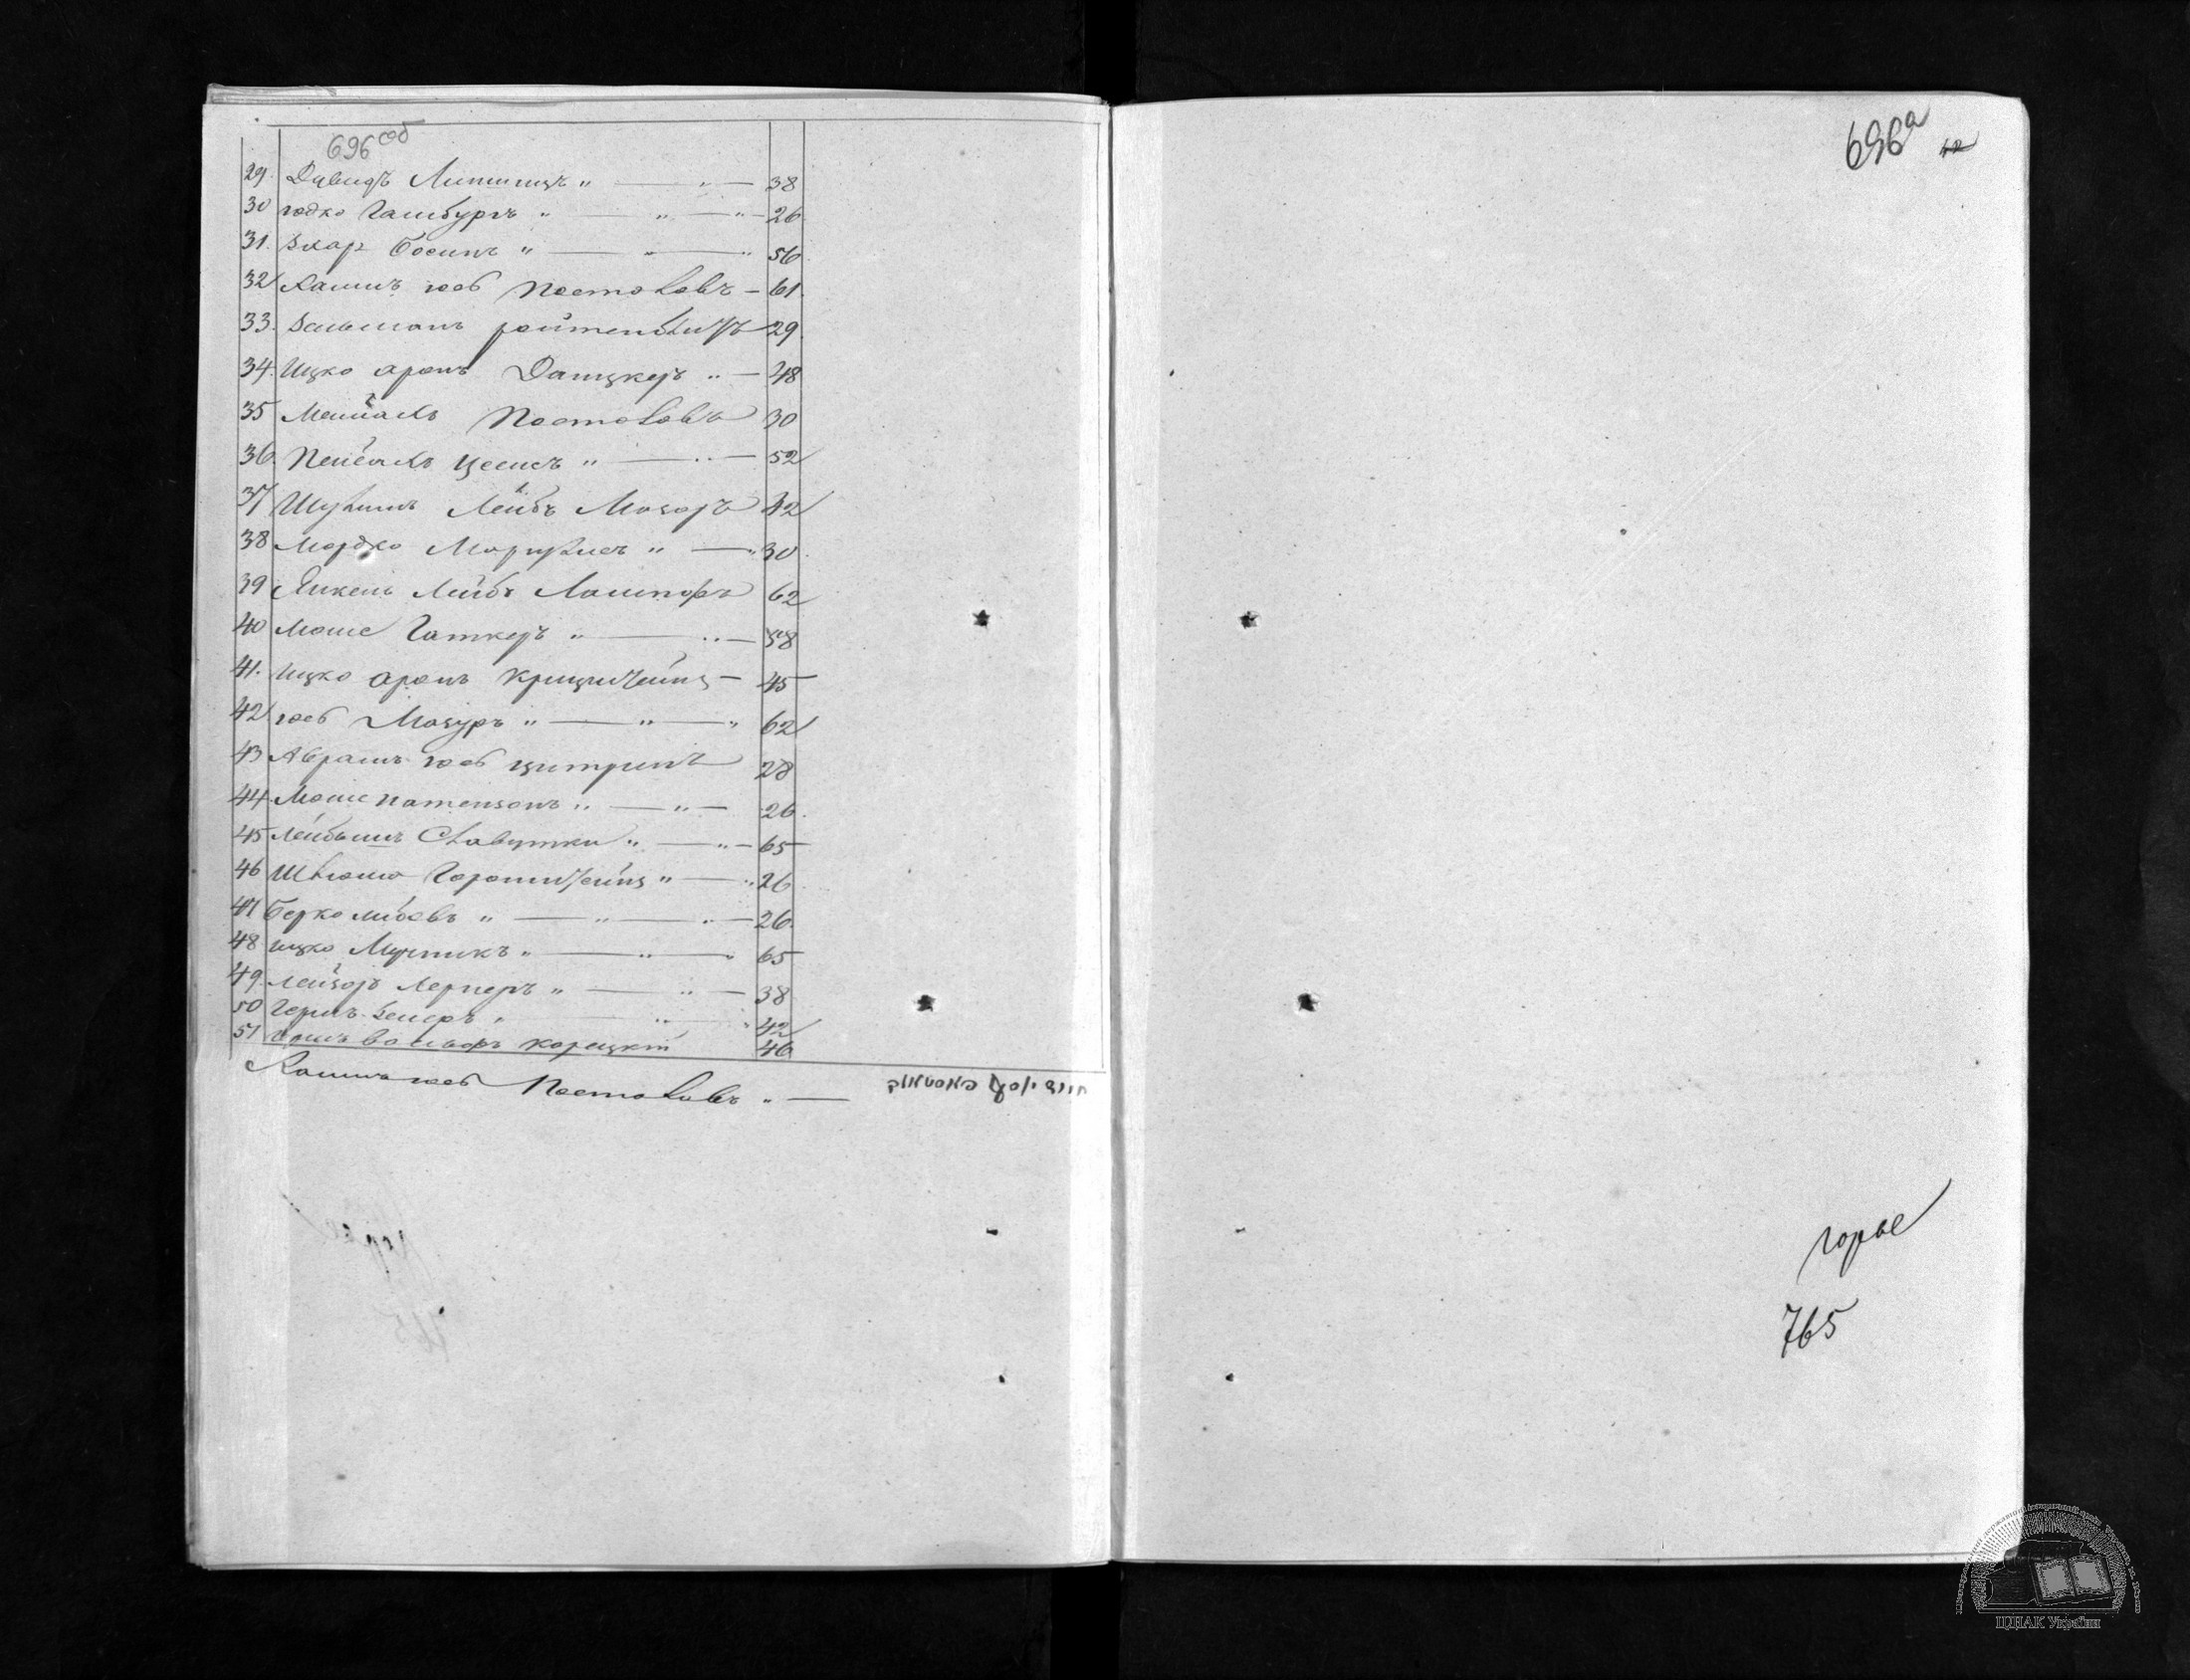 696 об
29. Давидъ Липшицъ " — " — 38
30 юдко Гамбургъ " — " — " — 26
31. Захар Босинъ " — " — " 56
32 Хаимъ юсб Постоловъ — 61.
33. Зельманъ ройтенбургъ 29
34. Ицко аронъ Данцкеръ " — 48
35 Мешйлхъ Постоловъ 30
36. Пейсахъ Цесисъ " — " — 52
37 Шулимъ Лейбъ Мазоръ 42
38 Мордко Моргулисъ " — " 30
39 Янкель Лейбъ Лашноръ 62
40 Моше Гаткеръ " — " — 58
41. ицко аронъ Крицштейнъ — 45
42 юсб Мазуръ " — " — " 62
43 Аврамъ юсб цитринъ 28
44. Моше натензонъ " — " — 26.
45 Лейбышъ Славутки " — " — 65
46 Шлиомо Горонштейнъ " — " 26
47 Берко либовъ " — " — " — 26.
48 ицко Мучникъ " — " — " 65
49. лейзоръ Лернеръ " — " — 38
50 Гершъ Зегеръ " — " — " 42
51 гершъ вольфъ корецкій 46
Хаимъ юсб Постоловъ " —
חיים יוסף פאסטאוק
696а
горые
765
ЦДІАК України